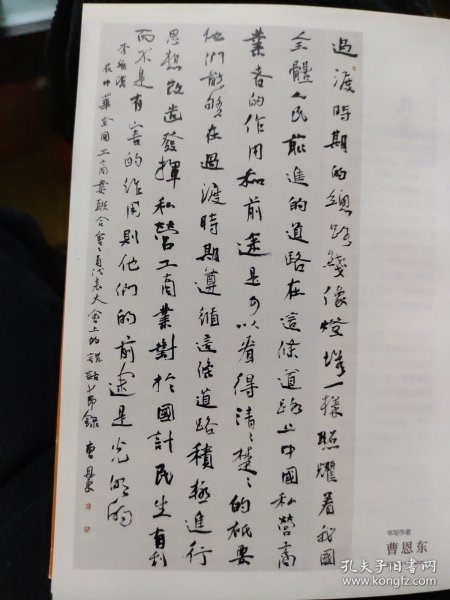 過渡時期的總路綫像燈塔一樣照耀着我國
全體人民前進的道路在這條道路上中國私營商
業者的作用和前途是可以看得清清楚楚的祇要
他們能够在過渡時期遵循這條道路積極進行
思想改造發揮私營工商業對於國計民生有利
而不是有害的作用則他們的前途是光明的
李維漢
在中華全國工商業聯合會會員代表大會上的講話節錄 曹恩東
书写作者
曹恩东
孔夫子旧书网